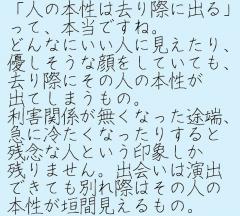 「人の本性は去り際に出る」
って、本当ですね。
どんなにいい人に見えたり、
優しそうな顔をしていても、
去り際にその人の本性が
出てしまうもの。
利害関係が無くなった途端、
急に冷たくなったりすると
残念な人という印象しか
残りません。出会いは演出
できても別れ際はその人の
本性が垣間見えるもの。